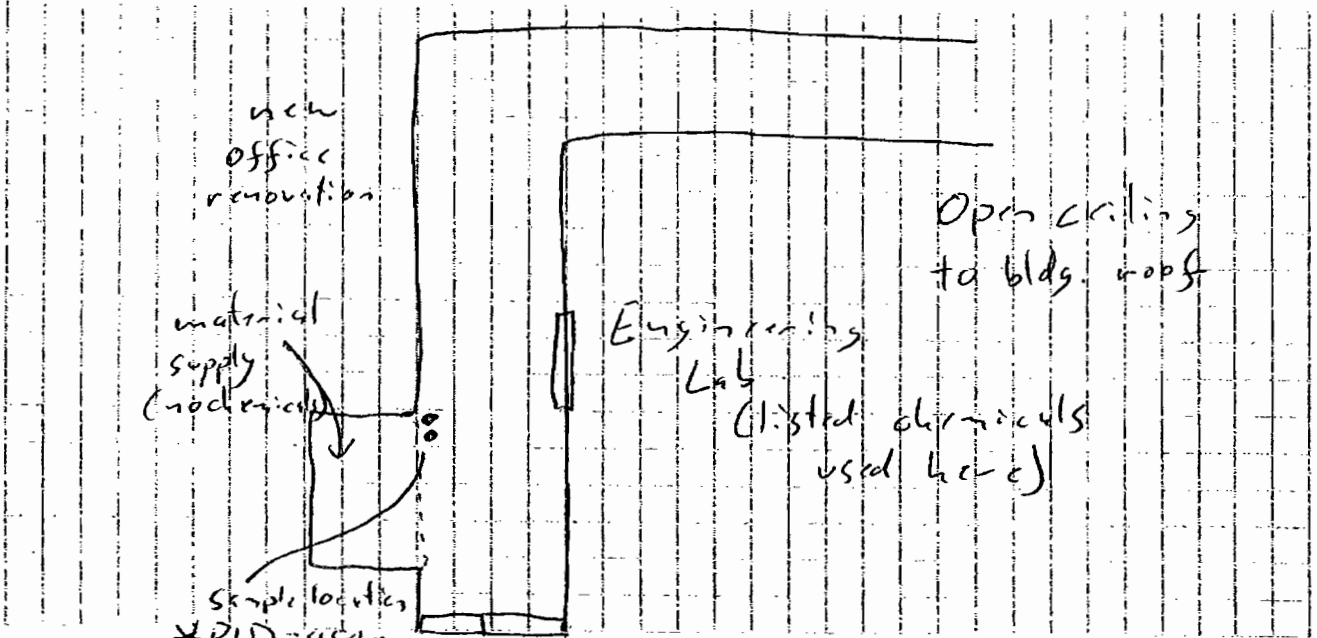 new
office
renovation
Open ceiling
to bldg. roof
material
supply
(no chemicals)
Engineering
Lab
(listed chemicals
used here)
sample location
* PID